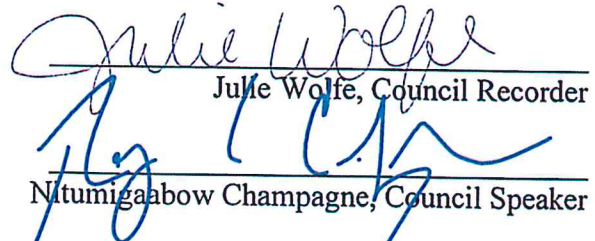 Julie Wolfe
Julie Wolfe, Council Recorder
Nitumigaabow Champagne, Council Speaker